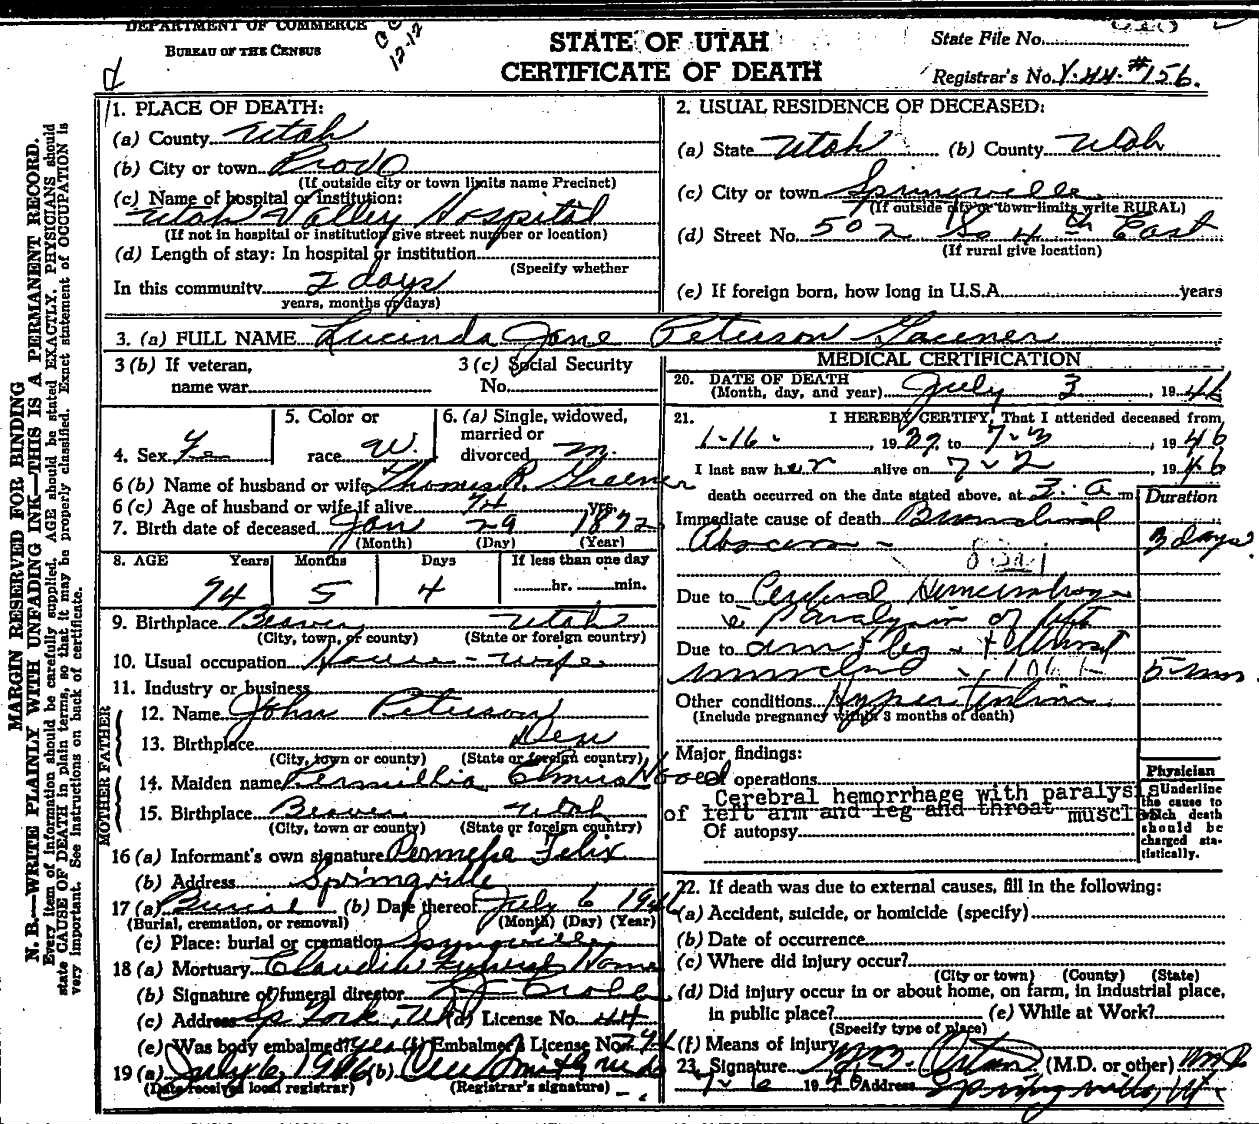 DEPARTMENT OF COMMERCE
BUREAU OF THE CENSUS
12-12
STATE OF UTAH
CERTIFICATE OF DEATH
State File No.
Registrar's No. Y-44-#156.
MARGIN RESERVED FOR BINDING
N. B.—WRITE PLAINLY WITH UNFADING INK—THIS IS A PERMANENT RECORD.
Every item of information should be carefully supplied. AGE should be stated EXACTLY. PHYSICIANS should
state CAUSE OF DEATH in plain terms, so that it may be properly classified. Exact statement of OCCUPATION is
very important. See instructions on back of certificate.
1. PLACE OF DEATH:
(a) County Utah
(b) City or town Provo
(If outside city or town limits name Precinct)
(c) Name of hospital or institution:
Utah Valley Hospital
(If not in hospital or institution give street number or location)
(d) Length of stay: In hospital or institution
(Specify whether
In this community 2 days
years, months or days)
2. USUAL RESIDENCE OF DECEASED:
(a) State Utah (b) County Utah
(c) City or town Springville
(If outside city or town limits write RURAL)
(d) Street No. 502 So 4th East
(If rural give location)
(e) If foreign born, how long in U.S.A. years
3. (a) FULL NAME Lucinda Jane Peterson
3 (b) If veteran,
name war
3 (c) Social Security
No.
4. Sex Fe
5. Color or
race W.
6. (a) Single, widowed,
married or
divorced m.
6 (b) Name of husband or wife Thomas R.
6 (c) Age of husband or wife if alive 74 yrs.
7. Birth date of deceased Jan 29 1872
(Month) (Day) (Year)
8. AGE Years Months Days If less than one day
74 5 4 hr. min.
9. Birthplace Beaver Utah
(City, town, or county) (State or foreign country)
10. Usual occupation House-wife
11. Industry or business
FATHER
12. Name John Peterson
13. Birthplace Den
(City, town or county) (State or foreign country)
MOTHER
14. Maiden name
15. Birthplace Beaver Utah
(City, town or county) (State or foreign country)
16 (a) Informant's own signature Felix
(b) Address Springville
17 (a) Burial (b) Date thereof July 6 1946
(Burial, cremation, or removal) (Month) (Day) (Year)
(c) Place: burial or cremation Springville
18 (a) Mortuary Claudin Funeral Home
(b) Signature of funeral director
(c) Address Sp Fork, Ut (d) License No. 44
(e) Was body embalmed? yes (f) Embalmer's License No.
19 (a) July 6, 1946 (b)
(Date received local registrar) (Registrar's signature)
MEDICAL CERTIFICATION
20. DATE OF DEATH
(Month, day, and year) July 3, 1946
21. I HEREBY CERTIFY, That I attended deceased from
1-16-, 1937 to 7-3, 1946
I last saw her alive on 7-2 1946
death occurred on the date stated above, at 3. a m
Duration
Immediate cause of death Bronchial
Abscess - 3 days
Due to Cerebral Hemorrhage
c Paralysis of left
Due to arm & leg - & throat
5
Other conditions Hypertension
(Include pregnancy within 3 months of death)
Major findings:
Of operations
Cerebral hemorrhage with paralysis
of left arm and leg and throat muscles
Of autopsy
Physician
Underline
the cause to
which death
should be
charged sta-
tistically.
22. If death was due to external causes, fill in the following:
(a) Accident, suicide, or homicide (specify)
(b) Date of occurrence
(c) Where did injury occur?
(City or town) (County) (State)
(d) Did injury occur in or about home, on farm, in industrial place,
in public place? (e) While at Work?
(Specify type of place)
(f) Means of injury
23. Signature (M.D. or other) M.D.
7-6 1946 Address Springville, Ut.